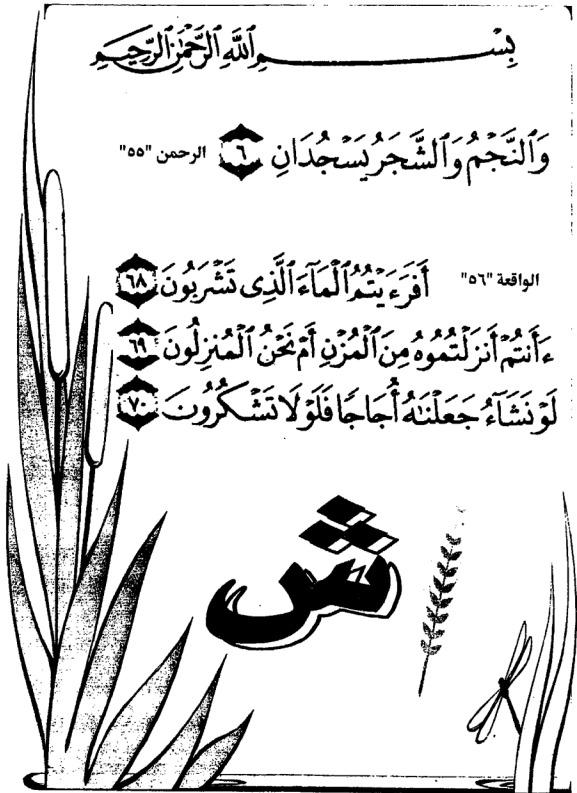 بِسْمِ ٱللَّهِ ٱلرَّحْمَٰنِ ٱلرَّحِيمِ
وَٱلنَّجْمُ وَٱلشَّجَرُ يَسْجُدَانِ ٦ الرحمن "٥٥"
الواقعة "٥٦" أَفَرَءَيْتُمُ ٱلْمَآءَ ٱلَّذِى تَشْرَبُونَ ٦٨
ءَأَنتُمْ أَنزَلْتُمُوهُ مِنَ ٱلْمُزْنِ أَمْ نَحْنُ ٱلْمُنزِلُونَ ٦٩
لَوْ نَشَآءُ جَعَلْنَٰهُ أُجَاجًا فَلَوْلَا تَشْكُرُونَ ٧٠
ش